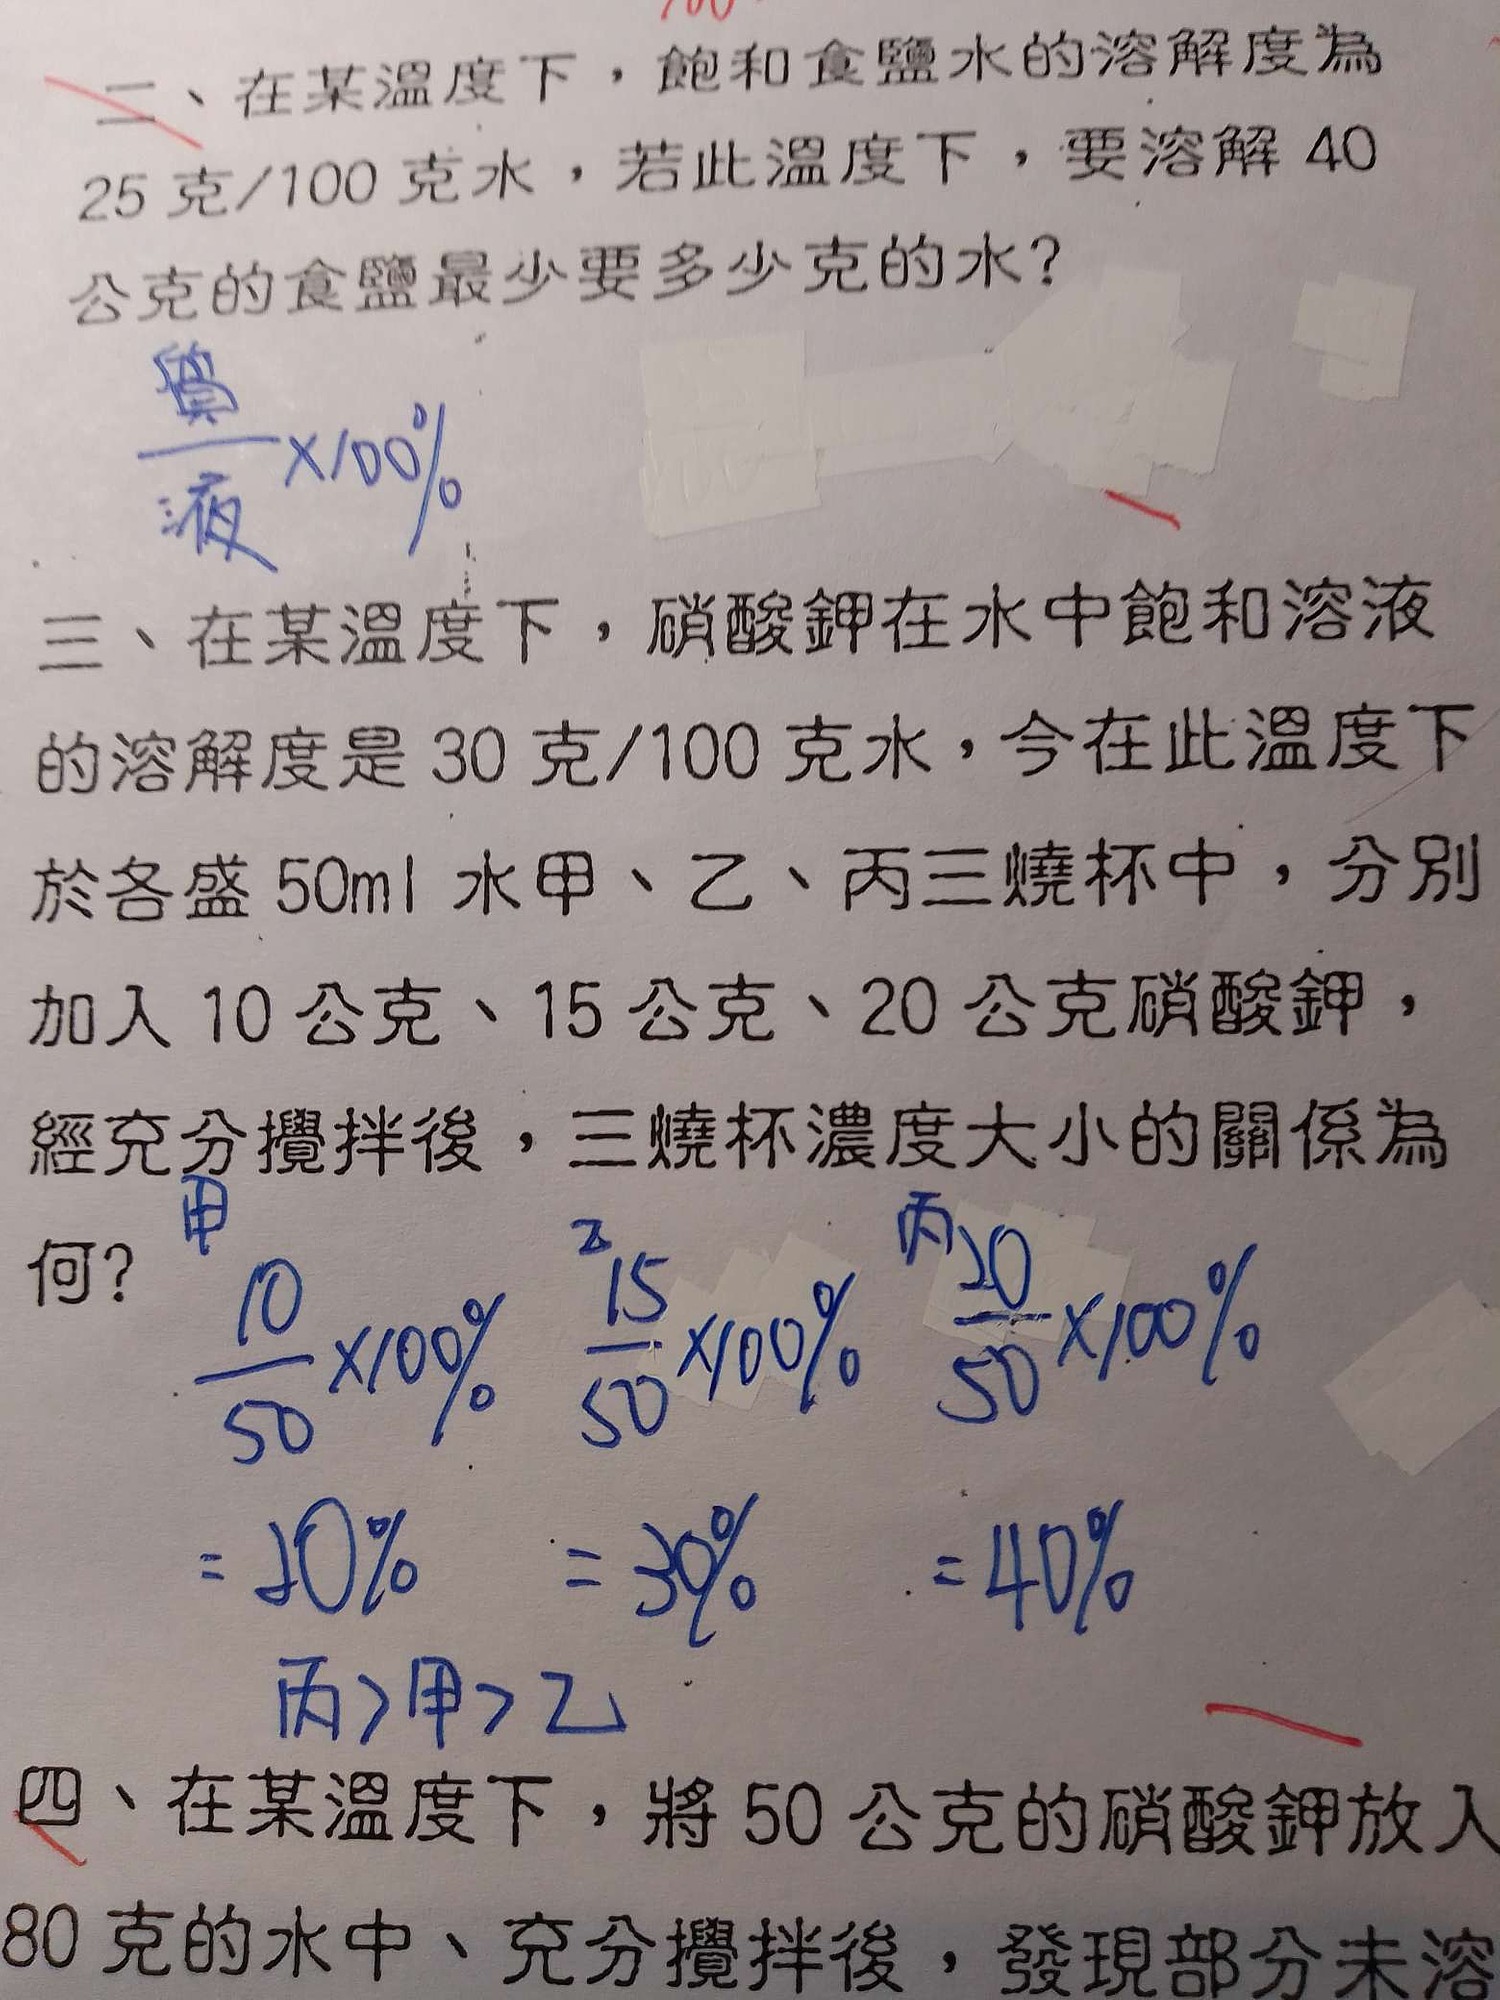 二、在某溫度下，飽和食鹽水的溶解度為
25克/100克水，若此溫度下，要溶解40
公克的食鹽最少要多少克的水？
質
液
×100%
三、在某溫度下，硝酸鉀在水中飽和溶液
的溶解度是30克/100克水，今在此溫度下
於各盛50ml水甲、乙、丙三燒杯中，分別
加入10公克、15公克、20公克硝酸鉀，
經充分攪拌後，三燒杯濃度大小的關係為
何？
甲 乙 丙
10/50 ×100% 15/50 ×100% 20/50 ×100%
=20% =30% =40%
丙>甲>乙
四、在某溫度下，將50公克的硝酸鉀放入
80克的水中、充分攪拌後，發現部分未溶